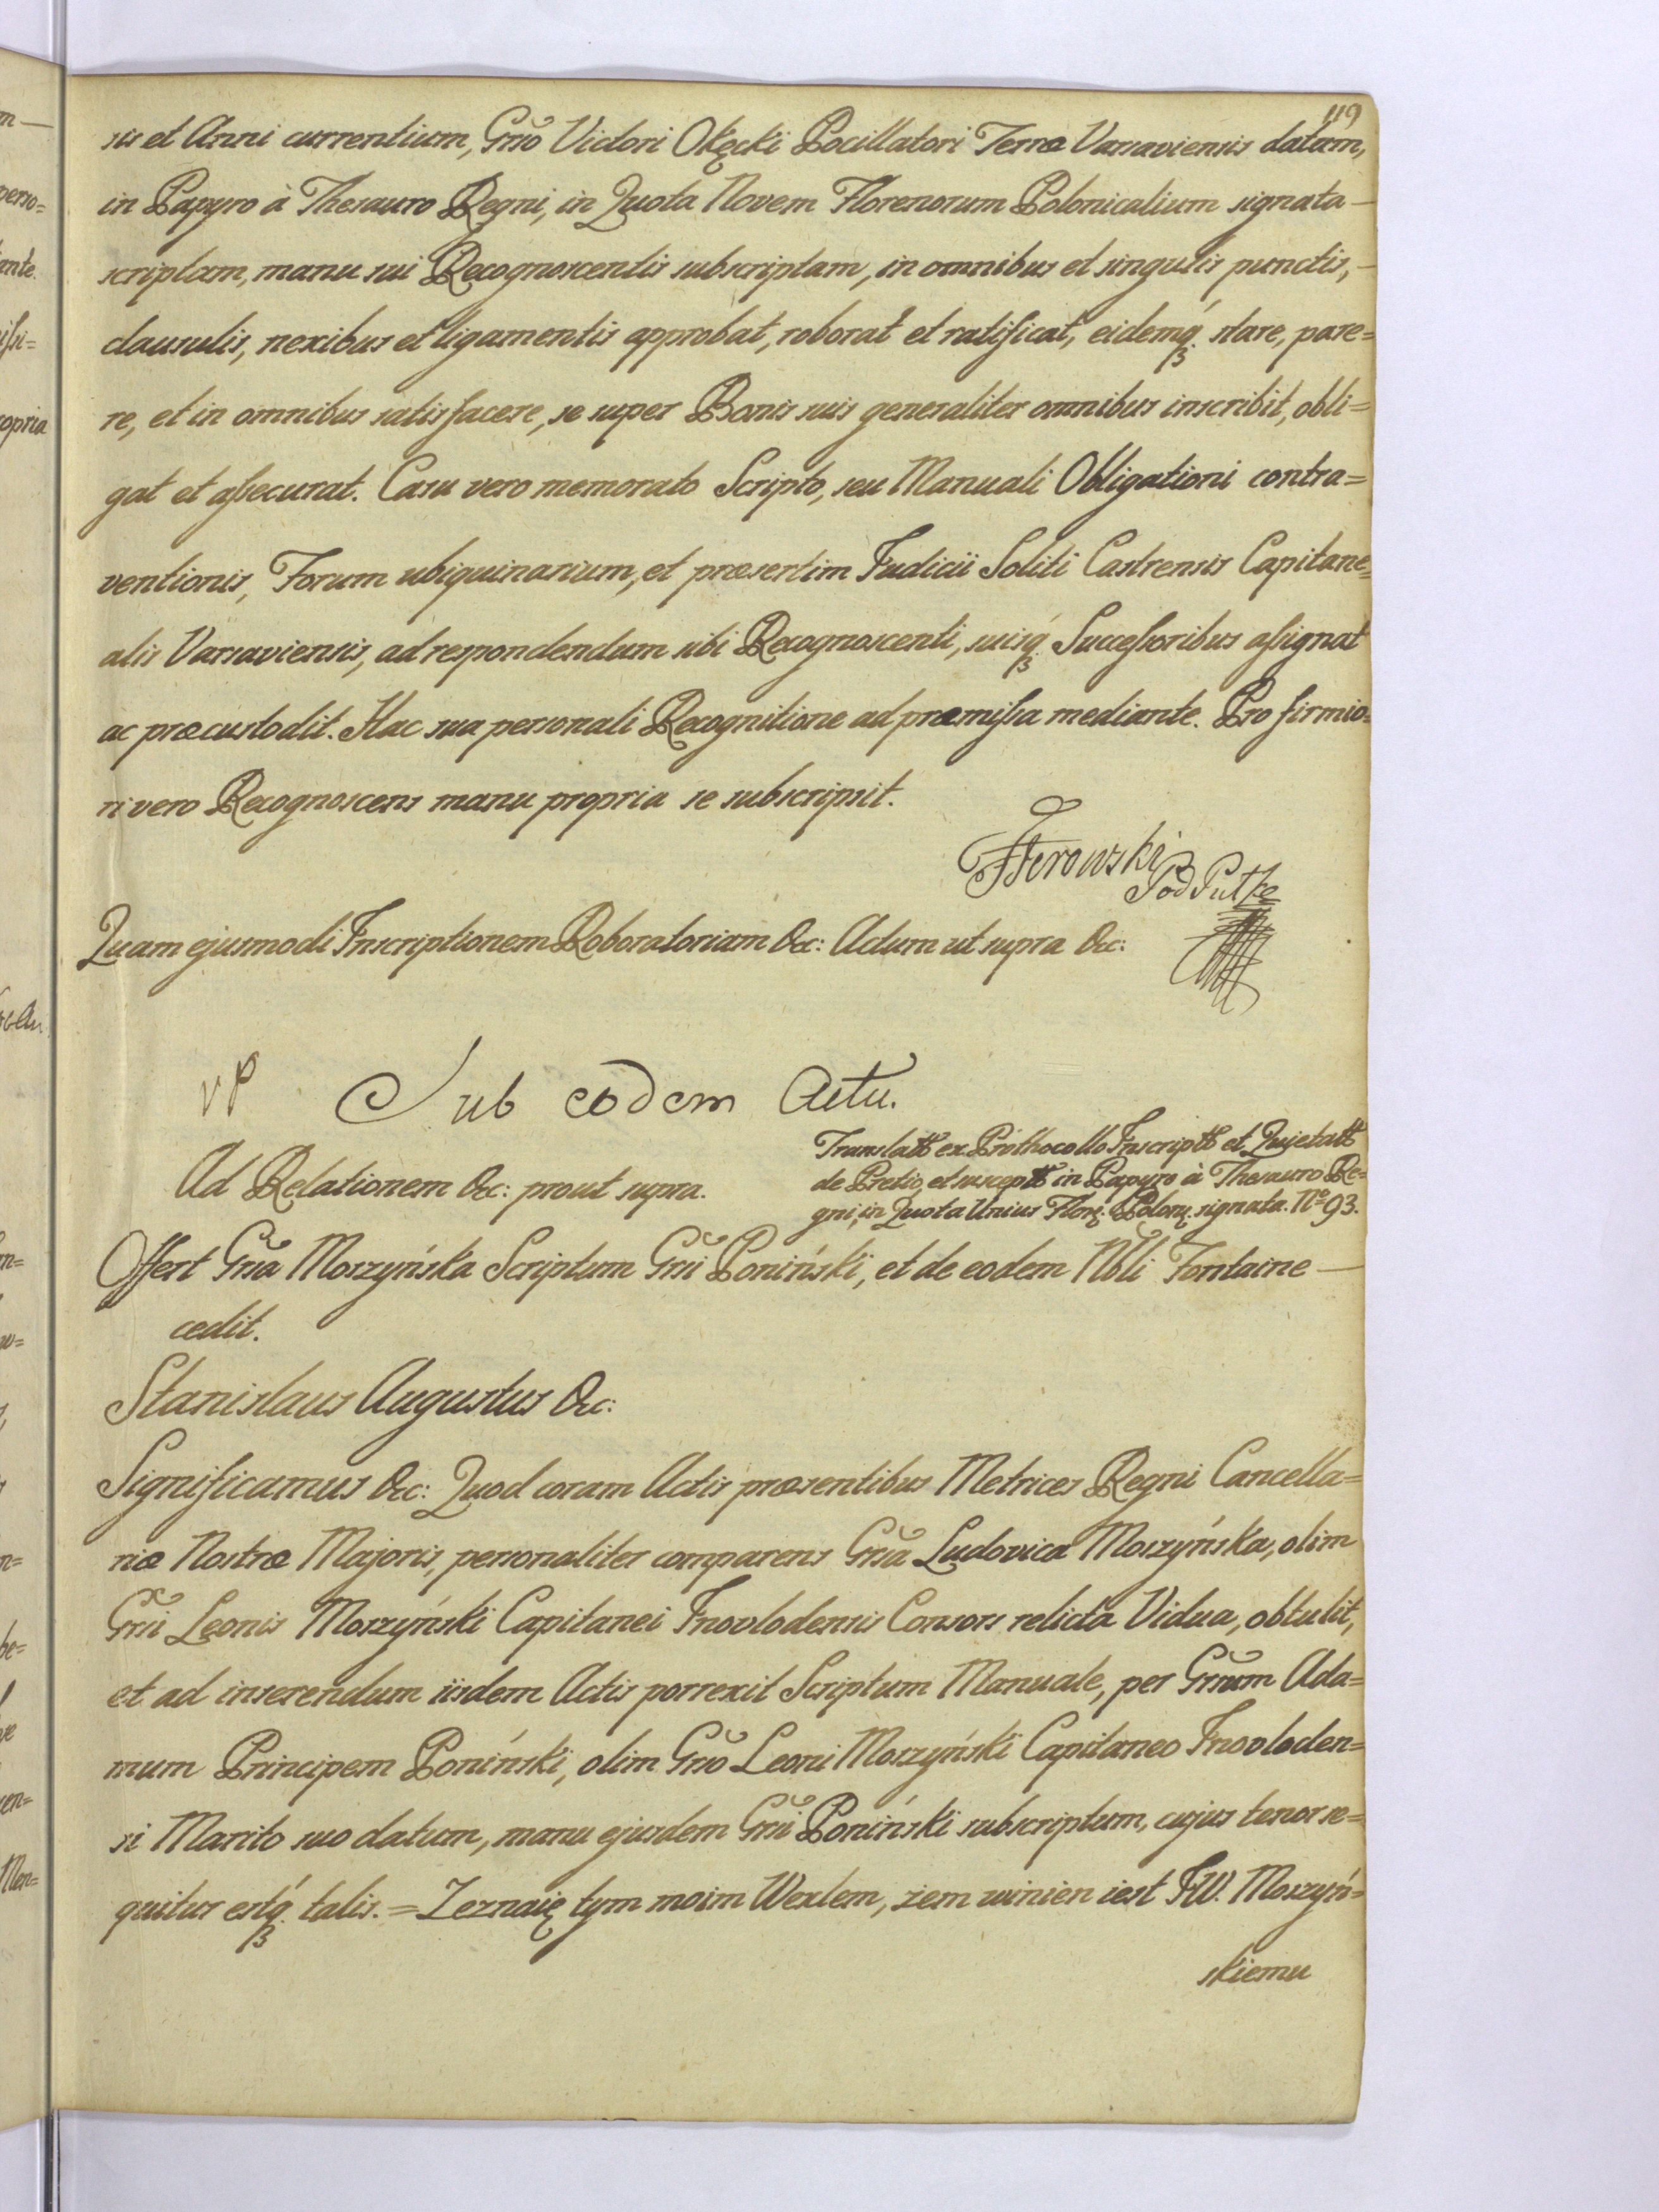 119
sis et Anni currentium, Grso Victori Okęcki Pocillatori Terræ Varsaviensis datam,
in Papyro à Thesauro Regni, in Quota Novem Florenorum Polonicalium signata —
scriptam, manu sui Recognoscentis subscriptam, in omnibus et singulis punctis, —
clausulis, nexibus et ligamentis approbat, roborat et ratificat, eidemq́ꝫ stare, pare=
re, et in omnibus satisfacere, se super Bonis suis generaliter omnibus inscribit, obli=
gat et aſsecurat. Casu vero memorato Scripto, seu Manuali Obligationi contra=
ventionis, Forum ubiquinarium, et præsertim Judicii Soliti Castrensis Capitane=
alis Varsaviensis, ad respondendum sibi Recognoscenti, suisq́ꝫ Succeſsoribus aſsignat
ac præcustodit. Hac sua personali Recognitione ad præmiſsa mediante. Pro firmio=
ri vero Recognoscens manu propria se subscripsit.
Quam ejusmodi Inscriptionem Roboratoriam &c: Actum ut supra &c:
VP Sub eodem Actu.
Ad Relationem &c: prout supra.
Translatt ex Prothocollo Inscriptt et Qujetatt
de Pretio, et susceptt in Papyro à Thesauro Re=
gni, in Quota Unius Flor. Polon. signata. No 93.
Offert Grsa Moszyńska Scriptum Grsi Poniński, et de eodem Nbli Fontaine —
cedit.
Stanislaus Augustus &c:
Significamus &c: Quod coram Actis præsentibus Metrices Regni Cancella=
riæ Nostræ Majoris, personaliter comparens Grsa Ludovica Moszyńska, olim
Grsi Leonis Moszyński Capitanei Inovlodensis Consors relicta Vidua, obtulit,
et ad inserendum iisdem Actis porrexit Scriptum Manuale, per Grsum Ada=
mum Principem Poniński, olim Grso Leoni Moszyński Capitaneo Inovloden=
si Marito suo datum, manu ejusdem Grsi Poniński subscriptum, cujus tenor se=
quitur estq́ꝫ talis. = Zeznaię tym moim Wexlem, żem winien iest JW. Moszyń=
skiemu